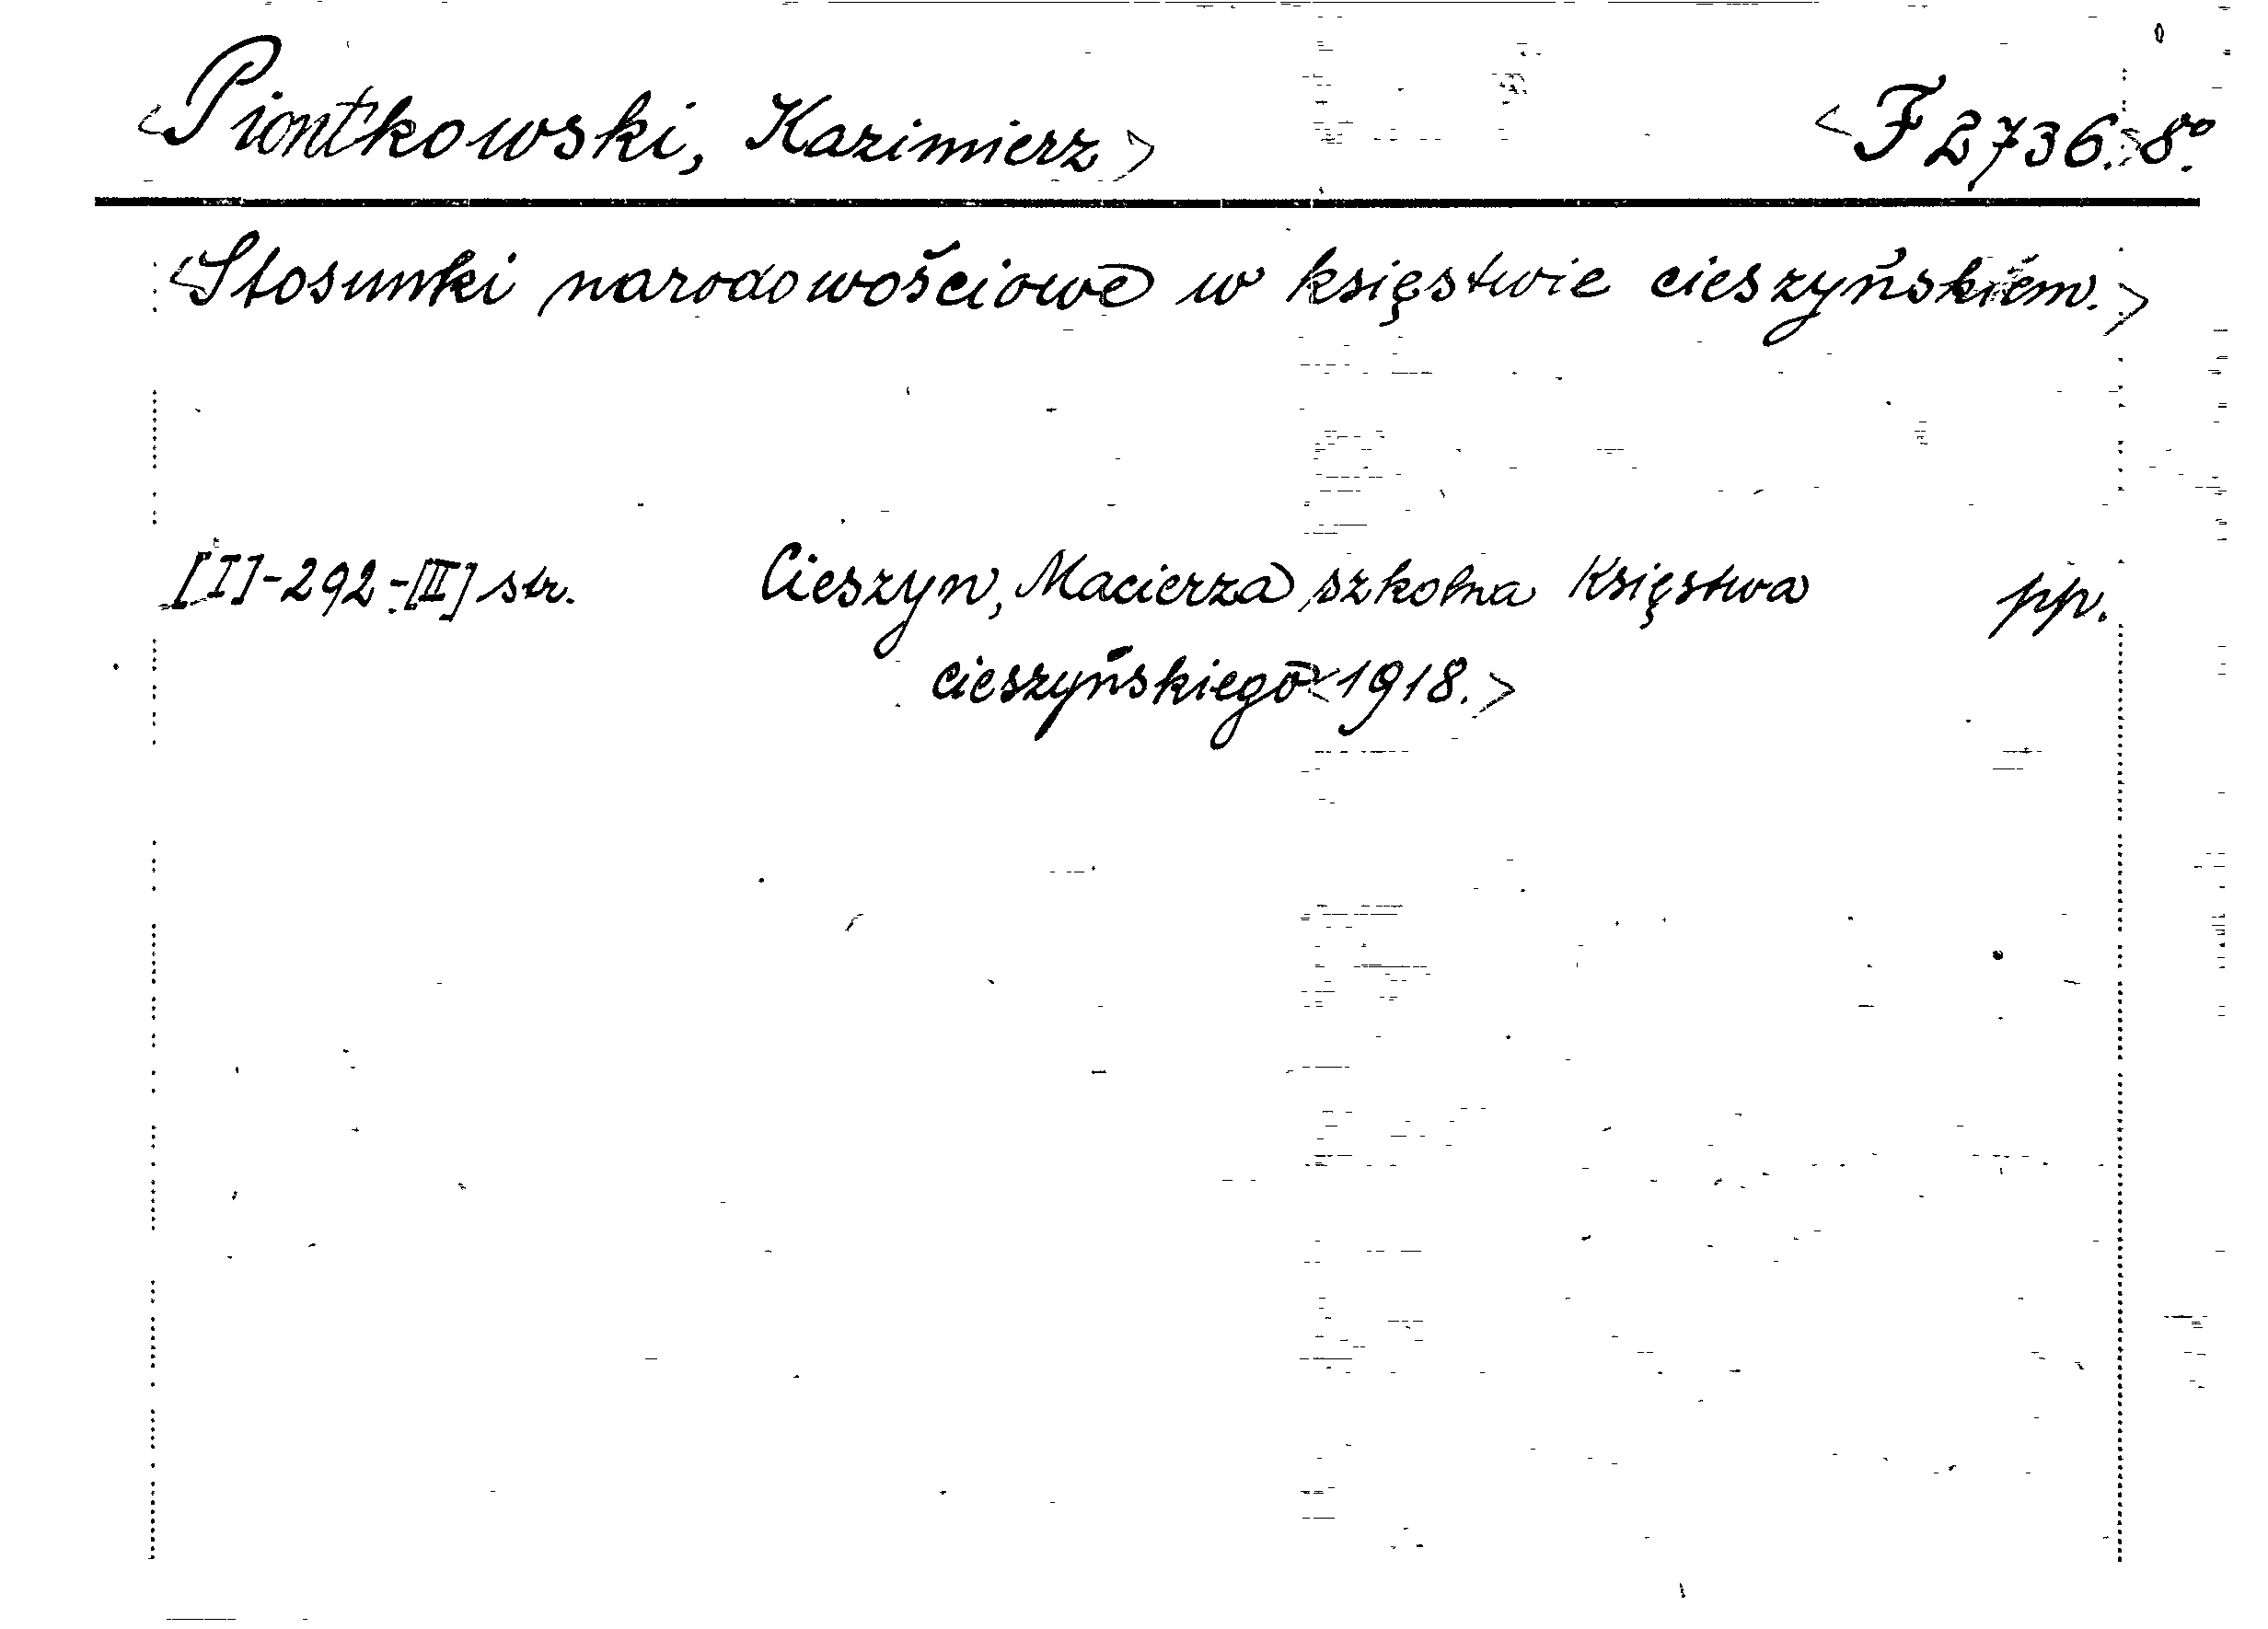 <Piontkowski, Kazimierz> <F 2736.> 8º.
<Stosunki narodowościowe w księstwie cieszyńskiem.>
[I]-292-[II] str. Cieszyn, Macierza szkolna Księstwa pp.
cieszyńskiego <1918.>